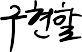 구현할